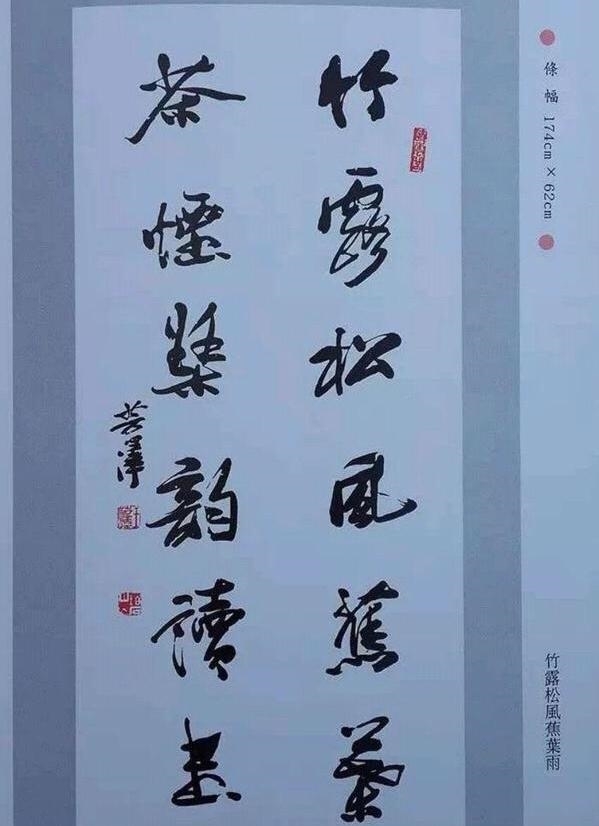 條幅 174cm × 62cm
竹露松風蕉葉雨
竹露松風蕉葉
茶煙琹韵讀書